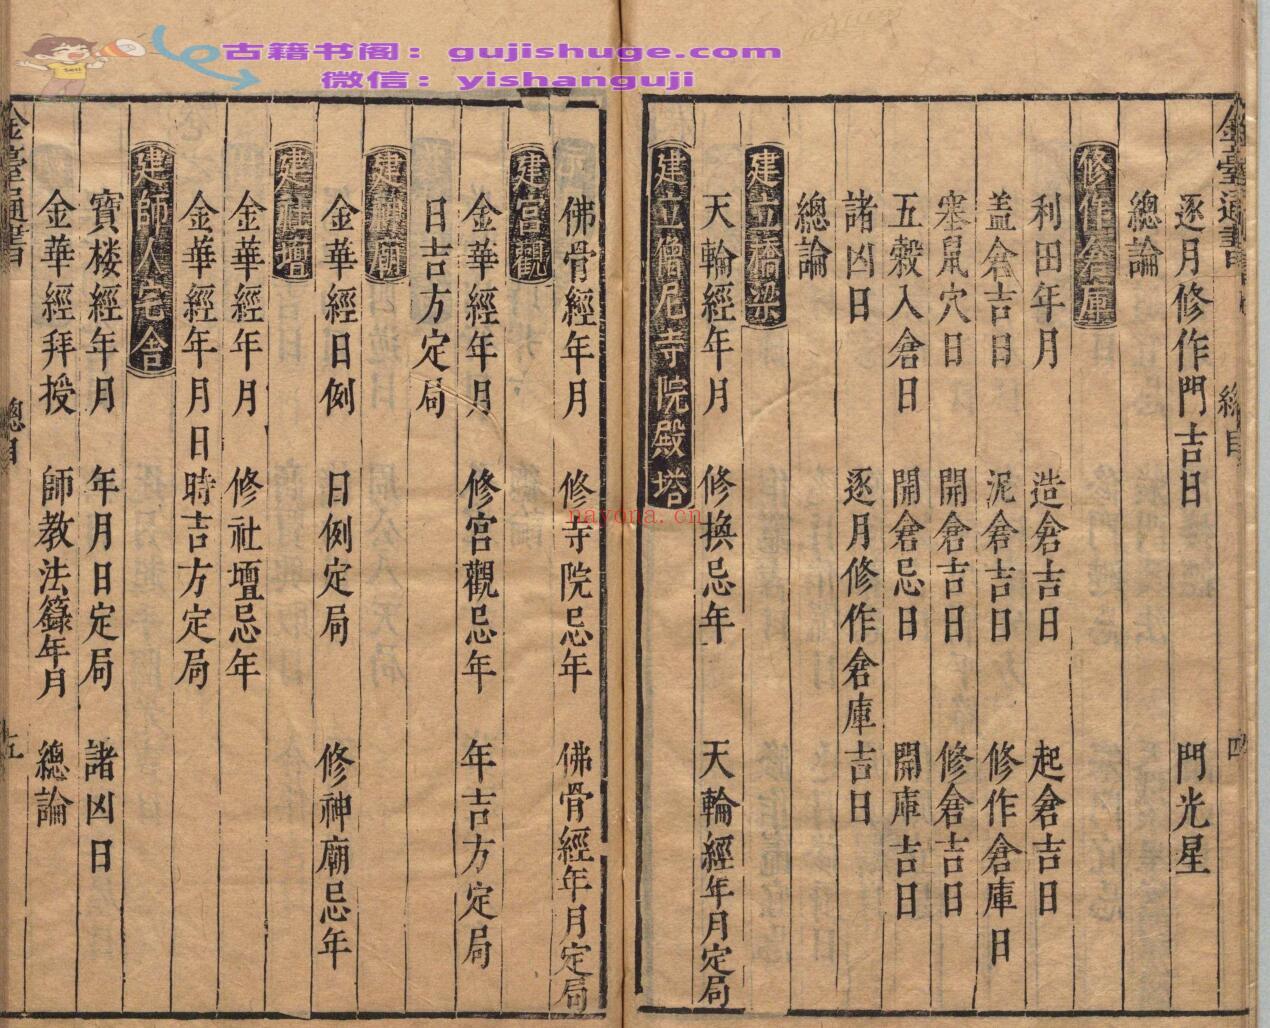 古籍书阁：gujishuge.com
微信：yishanguji
逐月修作門吉日 門光星
總論
修作倉庫
利田年月 造倉吉日 起倉吉日
盖倉吉日 泥倉吉日 修作倉庫日
塞鼠穴日 開倉吉日 修倉吉日
五穀入倉日 開倉忌日 開庫吉日
諸凶日 逐月修作倉庫吉日
總論
建立橋梁
天輪經年月 修換忌年 天輪經年月定局
建立僧尼寺院殿塔
佛骨經年月 修寺院忌年 佛骨經年月定局
建宮觀
金華經年月 修宮觀忌年 年吉方定局
日吉方定局
建神廟
金華經日例 日例定局 修神廟忌年
建社壇
金華經年月 修社壇忌年
金華經年月日 時吉方定局
建師人宅舍
寶楼經年月 年月日定局 諸凶日
金華經拜授 師教法籙年月 總論
總目 五
nayona.cn